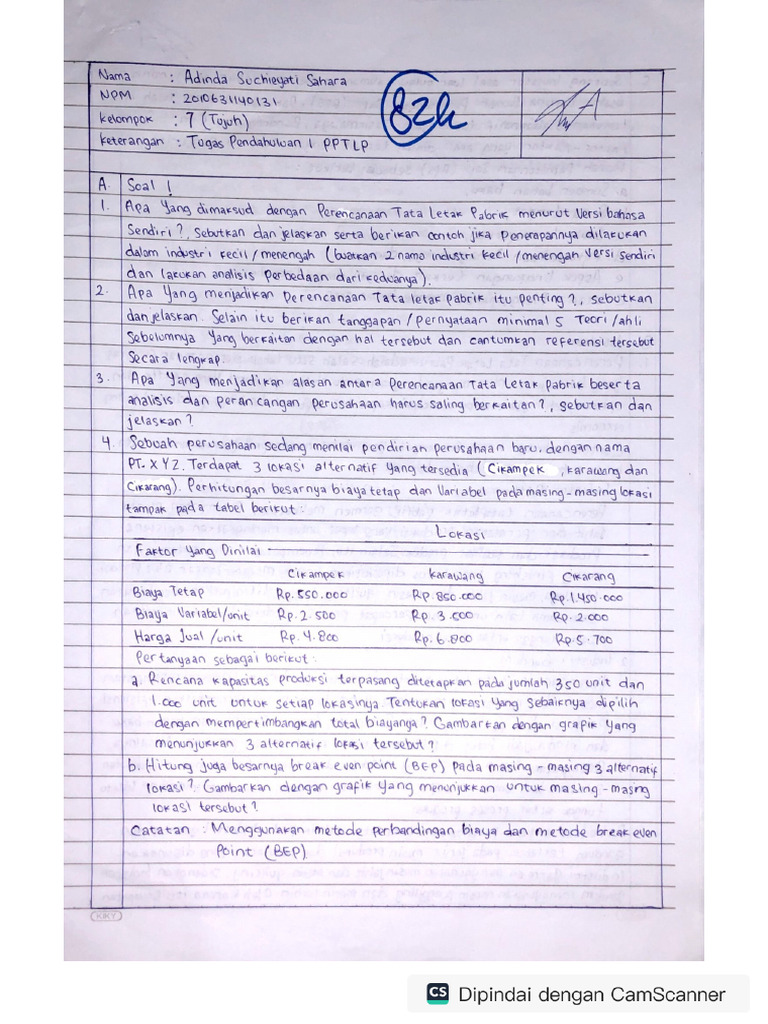 Nama : Adinda Suchieyati Sahara
NPM : 2010631140131
Kelompok : 7 (Tujuh)
Keterangan : Tugas Pendahuluan 1 PPTLP
82
A. Soal !
1. Apa yang dimaksud dengan Perencanaan Tata Letak Pabrik menurut versi bahasa
sendiri ?, sebutkan dan jelaskan serta berikan contoh jika penerapannya dilakukan
dalam industri kecil/menengah (buatkan 2 nama industri kecil/menengah versi sendiri
dan lakukan analisis perbedaan dari keduanya).
2. Apa yang menjadikan Perencanaan Tata letak pabrik itu penting ?, sebutkan
dan jelaskan. Selain itu berikan tanggapan/pernyataan minimal 5 Teori/ahli
sebelumnya yang berkaitan dengan hal tersebut dan cantumkan referensi tersebut
secara lengkap.
3. Apa yang menjadikan alasan antara perencanaan Tata Letak pabrik beserta
analisis dan perancangan perusahaan harus saling berkaitan ?, sebutkan dan
jelaskan ?
4. Sebuah perusahaan sedang menilai pendirian perusahaan baru, dengan nama
PT. XYZ. Terdapat 3 lokasi alternatif yang tersedia (Cikampek , karawang dan
Cikarang). Perhitungan besarnya biaya tetap dan Variabel pada masing-masing lokasi
tampak pada tabel berikut :
Lokasi
Faktor yang Dinilai
Cikampek Karawang Cikarang
Biaya Tetap Rp. 550.000 Rp. 850.000 Rp. 1.450.000
Biaya Variabel/unit Rp. 2.500 Rp. 3.000 Rp. 2.000
Harga Jual /unit Rp. 4.800 Rp. 6.800 Rp. 5.700
Pertanyaan sebagai berikut :
a. Rencana kapasitas produksi terpasang ditetapkan pada jumlah 350 unit dan
1.000 unit untuk setiap lokasinya. Tentukan lokasi yang sebaiknya dipilih
dengan mempertimbangkan total biayanya ? Gambarkan dengan grafik yang
menunjukkan 3 alternatif lokasi tersebut ?
b. Hitung juga besarnya break even point (BEP) pada masing-masing 3 alternatif
lokasi ? Gambarkan dengan grafik yang menunjukkan untuk masing-masing
lokasi tersebut ?
Catatan : Menggunakan metode perbandingan biaya dan metode break even
Point (BEP)
KIKY
CS Dipindai dengan CamScanner